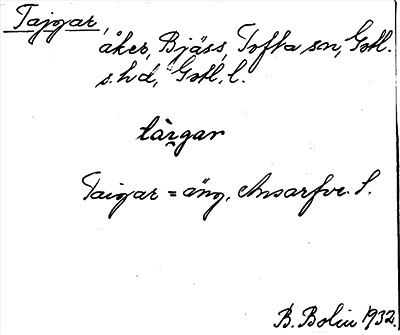 Tajgar,
åker, Bjäss, Tofta sn, Gotl.
s. hd, Gotl. l.
tàrgar
Taigar = äng, Ansarfve. S.
B. Bolin 1932.